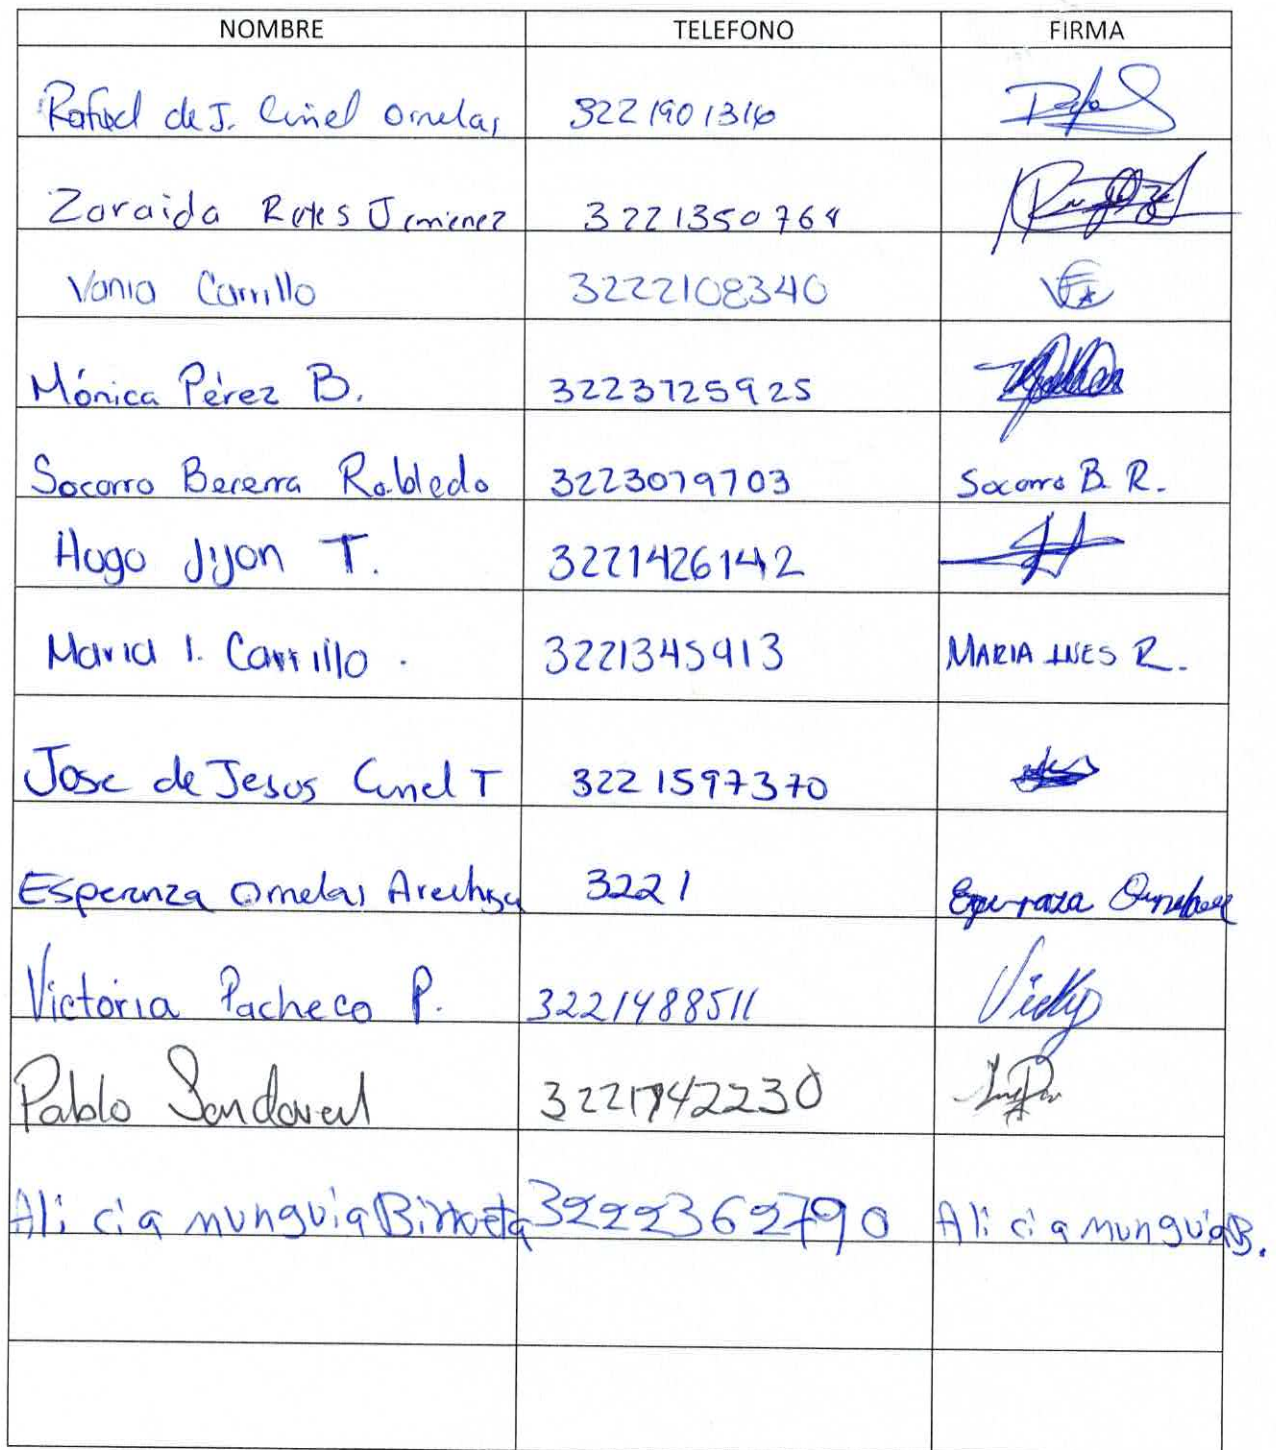 NOMBRE TELEFONO FIRMA
Rafael de J. Curiel Ornelas 3221901316
Zoraida Reyes Jimenez 3221350764
Vania Carrillo 3222108340
Mónica Pérez B. 3223725925
Socorro Becerra Robledo 3223079703 Socorro B. R.
Hugo Jijon T. 3221426142
Maria I. Carrillo. 3221345913 MARIA INES R.
Jose de Jesus Curiel T 3221597370
Esperanza Ornelas Arechiga 3221 Esperanza Ornelas
Victoria Pacheco P. 3221488511 Vicky
Pablo Sandoval 3221742230
Alicia munguia Birrueta 3222362790 Alicia munguia B.